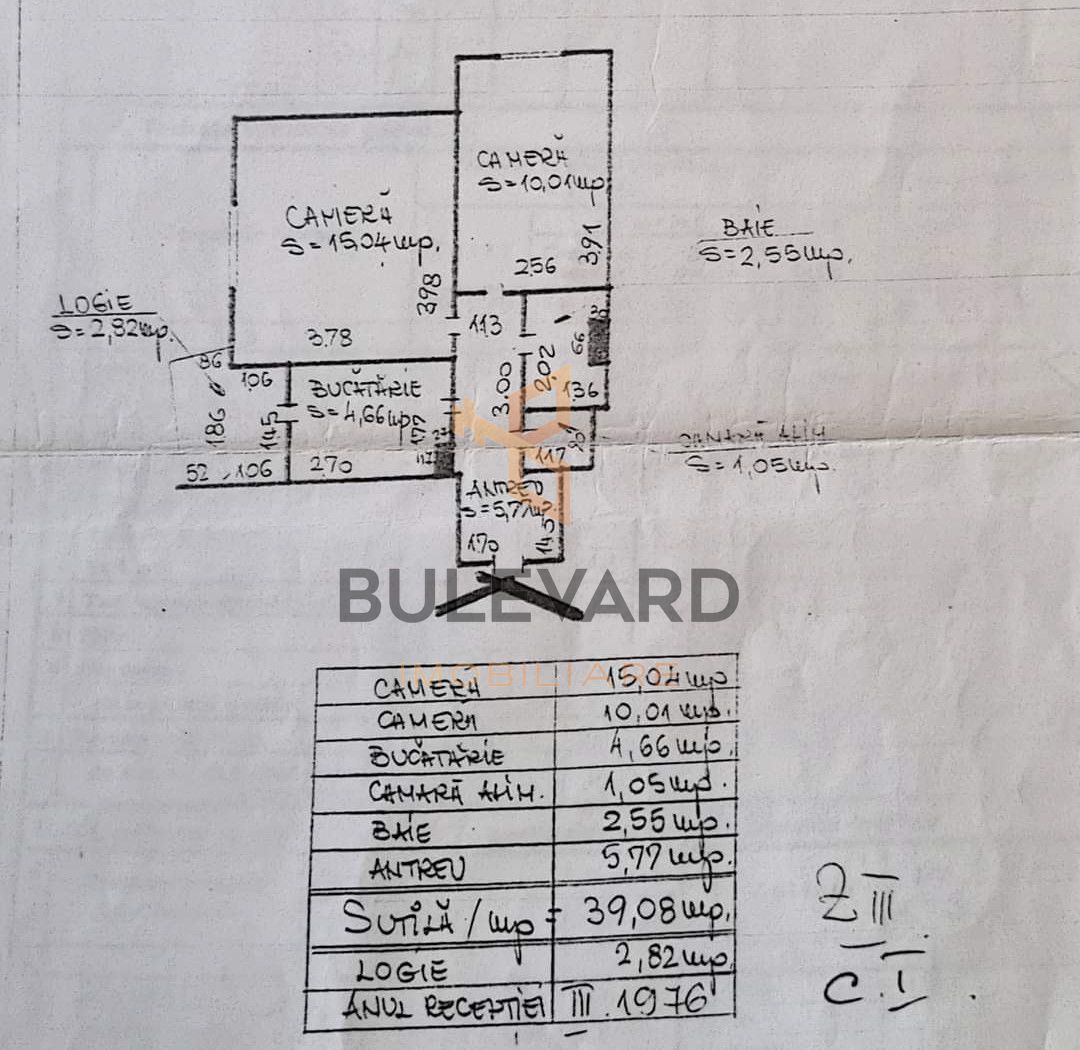 CAMERĂ
S=10,01mp
CAMERĂ
S=15,04mp.
391
256
398
BAIE
S=2,55mp.
LOGIE
S=2,82mp.
3.78
113
66
86
1.06
BUCĂTĂRIE
S=4,66mp
3.00
2.02
136
186
145
177
117
87
CAMARĂ ALIM
S=1,05mp.
52
1.06
2.70
ANTREU
S=5,77mp.
170
145
BULEVARD
IMOBILIARE
CAMERĂ 15,04mp
CAMERĂ 10,01mp.
BUCĂTĂRIE 4,66mp.
CAMARĂ ALIM. 1,05mp.
BAIE 2,55mp.
ANTREU 5,77mp.
SUTILĂ/mp = 39,08mp.
LOGIE 2,82mp.
ANUL RECEPȚIEI III.1976
Z III
C.I.